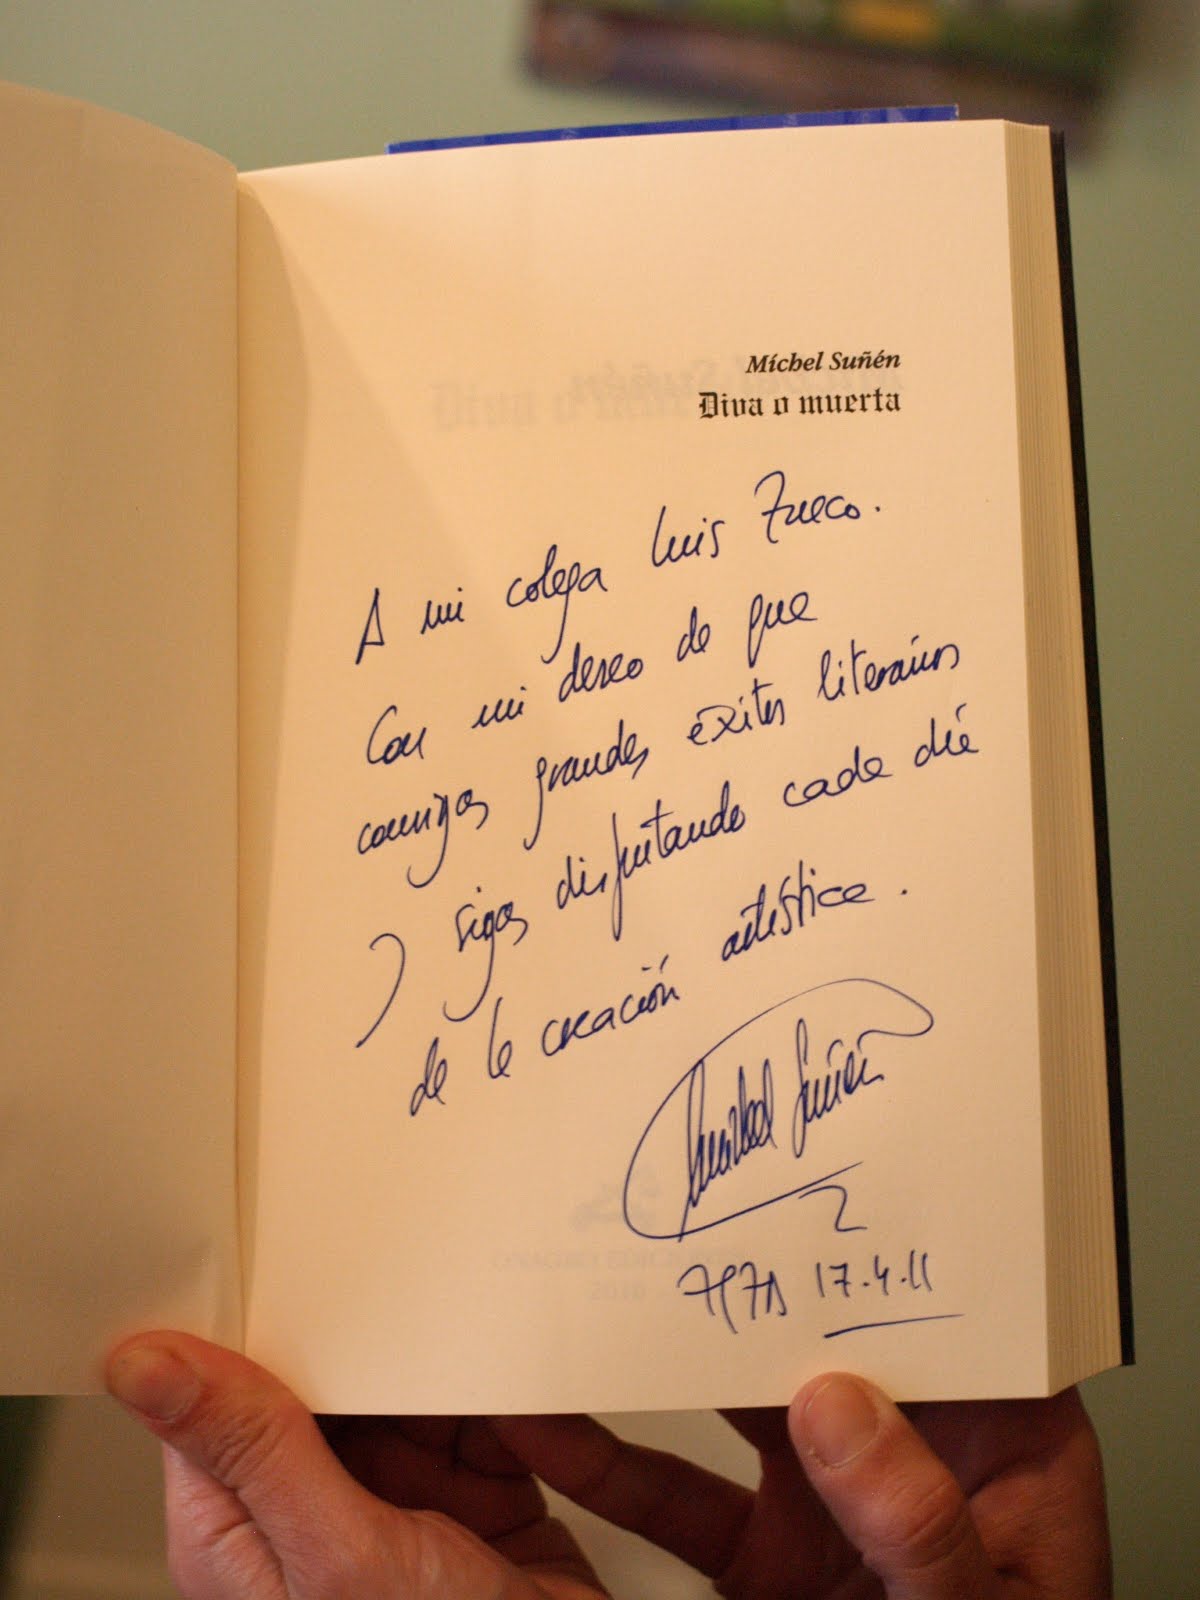 Míchel Suñén
Diva o muerta
A mi colega Luis Zueco.
Con mi deseo de que
consigas grandes éxitos literarios
y sigas disfrutando cada día
de la creación artística.
Míchel Suñén
17.4.11